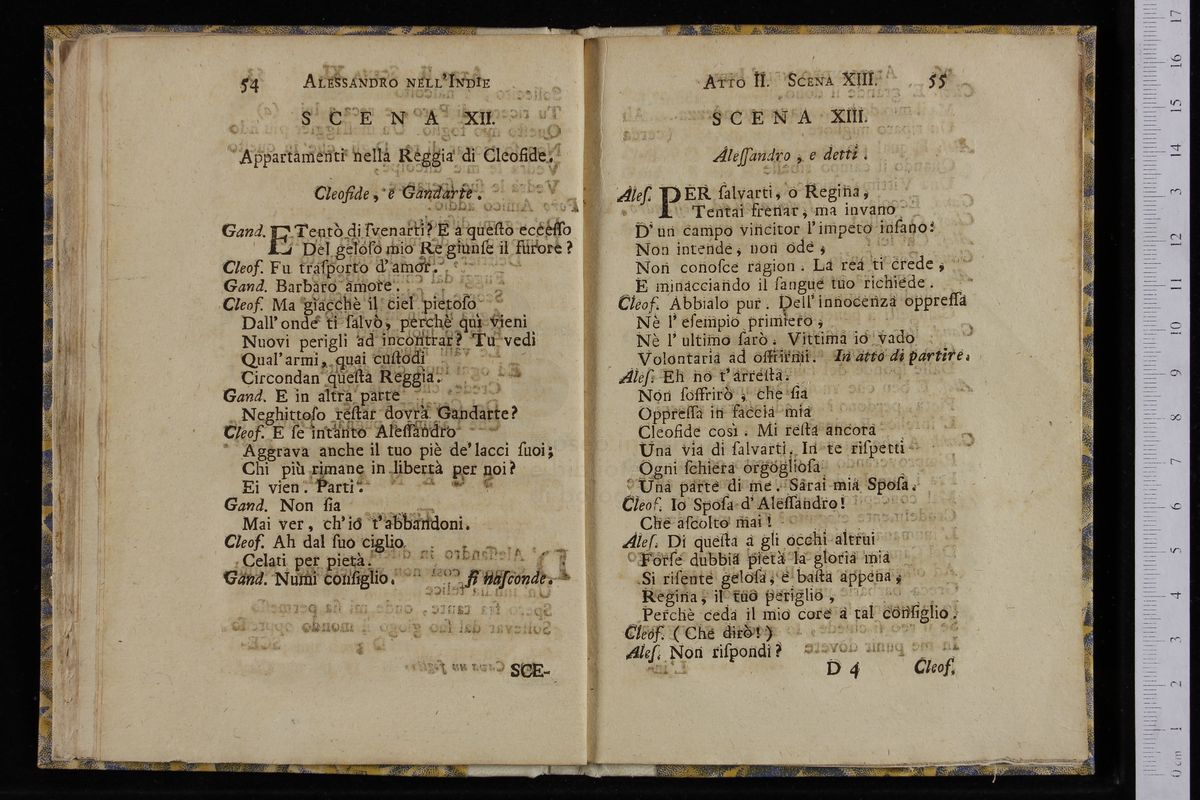 54 ALESSANDRO NELL'INDIE
SCENA XII.
Appartamenti nella Reggia di Cleofide.
Cleofide, e Gandarte.
Gand. E Tentò di ſvenarti? E a queſto ecceſſo
Del geloſo mio Re giunſe il furore?
Cleof. Fu traſporto d'amor.
Gand. Barbaro amore.
Cleof. Ma giacchè il ciel pietoſo
Dall'onde ti ſalvò, perchè quì vieni
Nuovi perigli ad incontrar? Tu vedi
Qual'armi, quai cuſtodi
Circondan queſta Reggia.
Gand. E in altra parte
Neghittoſo reſtar dovrà Gandarte?
Cleof. E ſe intanto Aleſſandro
Aggrava anche il tuo piè de'lacci ſuoi;
Chi più rimane in libertà per noi?
Ei vien. Parti.
Gand. Non ſia
Mai ver, ch'io t'abbandoni.
Cleof. Ah dal ſuo ciglio
Celati per pietà.
Gand. Numi conſiglio. ſi naſconde.
SCE-
ATTO II. SCENA XIII. 55
SCENA XIII.
Aleſſandro, e detti.
Aleſ. PER ſalvarti, o Regina,
Tentai frenar, ma invano
D'un campo vincitor l'impeto inſano:
Non intende, non ode,
Non conoſce ragion. La rea ti crede,
E minacciando il ſangue tuo richiede.
Cleof. Abbialo pur. Dell'innocenza oppreſſa
Nè l'eſempio primiero,
Nè l'ultimo ſarò. Vittima io vado
Volontaria ad offrirmi. In atto di partire.
Aleſ. Eh no t'arreſta.
Non ſoffrirò, che ſia
Oppreſſa in faccia mia
Cleofide così. Mi reſta ancora
Una via di ſalvarti. In te riſpetti
Ogni ſchiera orgoglioſa
Una parte di me. Sarai mia Spoſa.
Cleof. Io Spoſa d'Aleſſandro!
Che aſcolto mai!
Aleſ. Di queſta a gli occhi altrui
Forſe dubbia pietà la gloria mia
Si riſente geloſa, e baſta appena,
Regina, il tuo periglio,
Perchè ceda il mio core a tal conſiglio.
Cleof. (Che dirò!)
Aleſ. Non riſpondi?
D 4 Cleof.
0 cm 1 2 3 4 5 6 7 8 9 10 11 12 13 14 15 16 17